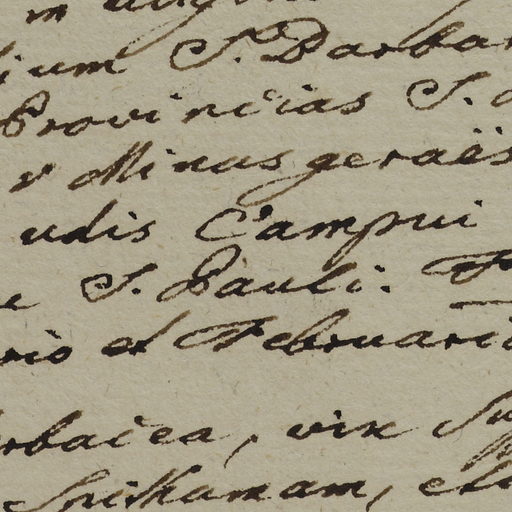 m
ium S. Barbar
Provincias S.
Minas geraës
udis Campui
S. Pauli.
rio et Februario
rbacea, vix
Spithamam,